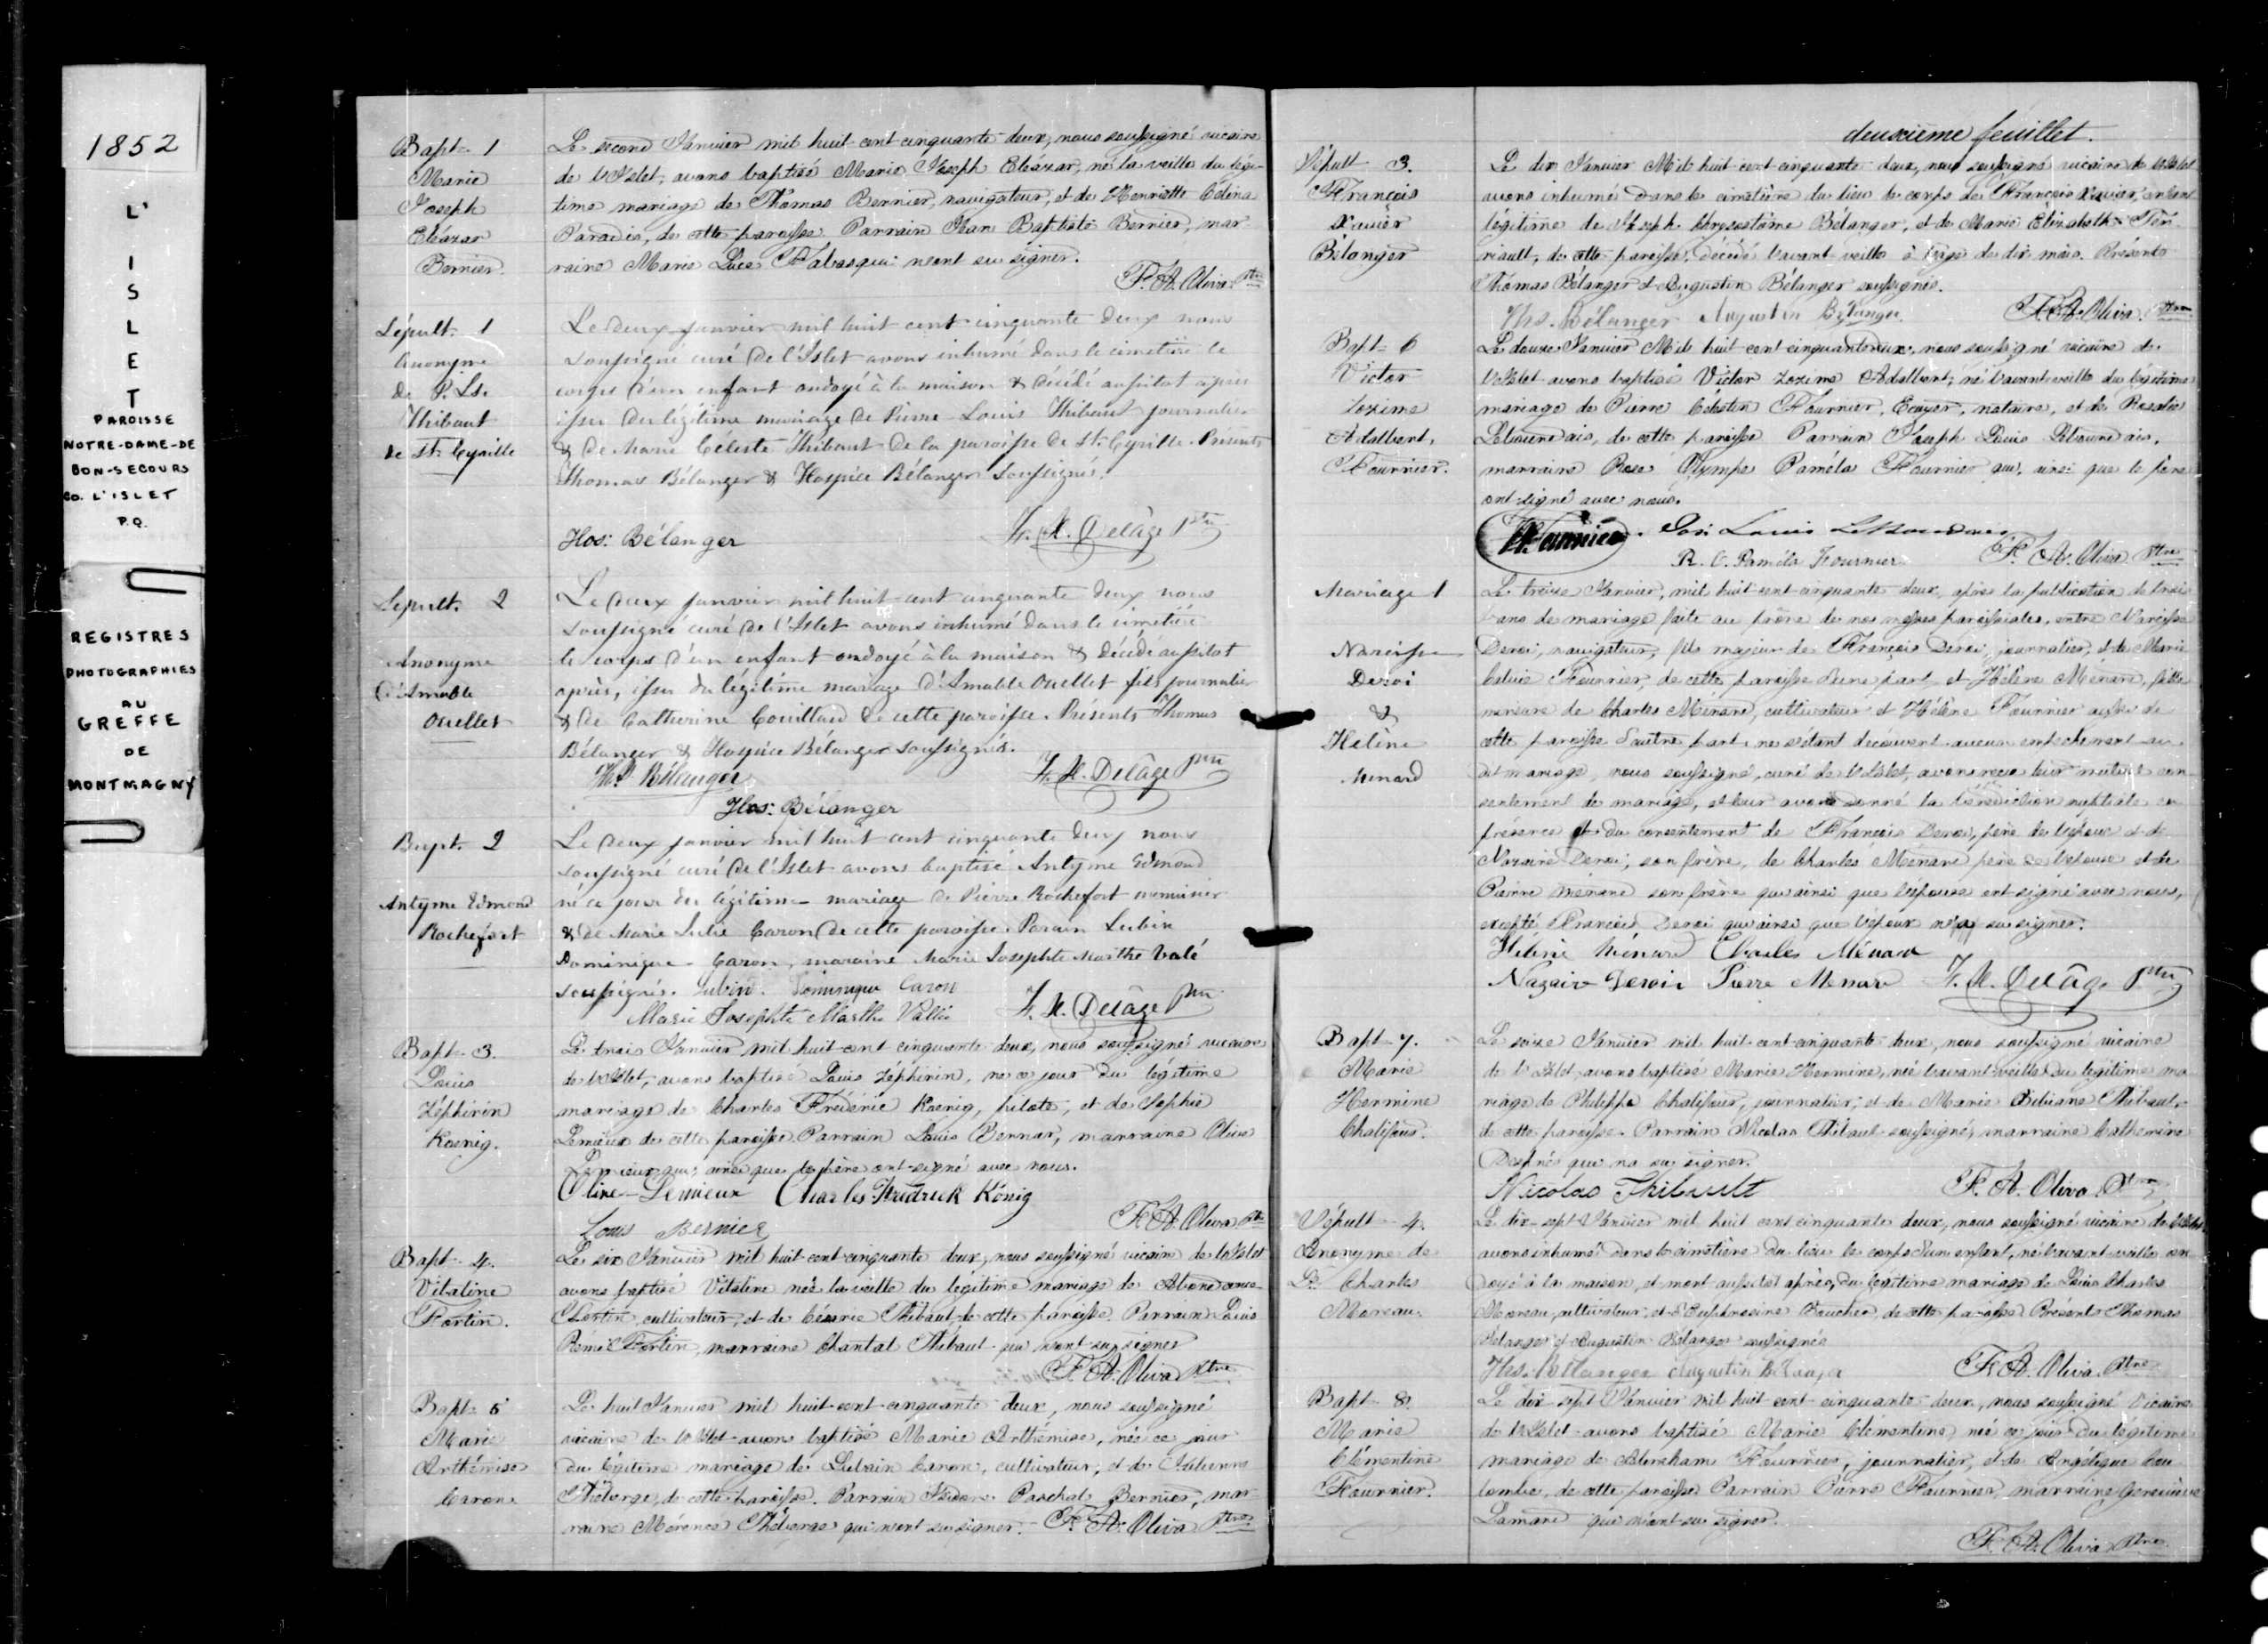 1852
L'
I
S
L
E
T
PAROISSE
NOTRE-DAME-DE
BON-SECOURS
Co. L'ISLET
P.Q.
REGISTRES
PHOTOGRAPHIES
AU
GREFFE
DE
MONTMAGNY
Bapt. 1
Marie
Joseph
Eléazar
Bernier.
Le second Janvier mil huit-cent-cinquante deux, nous soussigné vicaire
de l'Islet, avons baptisé Marie Joseph Eléazar, né la veille du légi-
time mariage de Thomas Bernier, navigateur, et de Henriette Célina
Paradis, de cette paroisse. Parrain Jean Baptiste Bernier, mar-
raine Marie Luce qui n'ont su signer.
F. A. Oliva Ptre
Sépult. 1
Anonyme
de P. Ls.
Thibaut
de St. Cyrille
Le deux janvier mil huit cent cinquante deux nous
soussigné curé de l'Islet avons inhumé dans le cimetière le
corps d'un enfant ondoyé à la maison & décédé aussitot après
issu du légitime mariage de Pierre Louis Thibaut journalier
& de Marie Céleste Thibaut de la paroisse de St. Cyrille. Présents
Thomas Bélanger & Hospice Bélanger soussignés.
Hos: Bélanger
F. X. Delâge Ptre
Sépult. 2
Anonyme
d'Amable
Ouellet
Le deux janvier mil huit cent cinquante deux nous
soussigné curé de l'Islet avons inhumé dans le cimetière
le corps d'un enfant ondoyé à la maison & décédé aussitot
après, issu du légitime mariage d'Amable Ouellet fils journalier
& de Catherine Couillard de cette paroisse. Présents Thomas
Bélanger & Hospice Bélanger soussignés.
Ths. Bélanger
F. X. Delâge Ptre
Hos: Bélanger
Bapt. 2
Antyme Edmond
Rochefort
Le deux janvier mil huit cent cinquante deux nous
soussigné curé de l'Islet avons baptisé Antyme Edmond
né ce jour du légitime mariage de Pierre Rochefort menuisier
& de Marie Julie Caron de cette paroisse. Parain Lubin
Dominique Caron, maraine Marie Josephte Marthe Valé
soussignés. Lubin Dominique Caron
Marie Josephte Marthe Vallée
F. X. Delâge Ptre
Bapt. 3.
Louis
Zéphirin
Koenig.
Le trois Janvier mil huit-cent cinquante deux, nous soussigné vicaire
de l'Islet, avons baptisé Louis Zéphirin, né ce jour du légitime
mariage de Charles Frédéric Koenig, pilote, et de Sophie
Lemieux de cette paroisse. Parrain Louis Bernier, marraine Olive
Lemieux qui, ainsi que le père ont signé avec nous.
Olive Lemieux Charles Fredrick König
Louis Bernier
F. A. Oliva Ptre
Bapt. 4.
Vitaline
Fortin.
Le six Janvier mil huit-cent-cinquante deux, nous soussigné vicaire de l'Islet
avons baptisé Vitaline née la veille du légitime mariage de Abondance
Fortin, cultivateur, et de Césarie Thibaut de cette paroisse. Parrain Louis
Rémi Fortin, marraine Chantal Thibaut qui n'ont su signer
F. A. Oliva Ptre
Bapt. 5
Marie
Arthémise
Caron.
Le huit Janvier mil huit-cent-cinquante deux, nous soussigné
vicaire de l'Islet avons baptisé Marie Arthémise, née ce jour
du légitime mariage de Lubain Caron, cultivateur, et de Julienne
Théberge, de cette paroisse. Parrain Isidore Paschal Bernier, mar-
raine Mérence Théberge qui n'ont su signer. F. A. Oliva Ptre
deuxième feuillet.
Sépult. 3.
François
Xavier
Bélanger
Le dix Janvier Mil huit-cent-cinquante deux, nous soussigné vicaire de l'Islet
avons inhumé dans le cimetière du lieu le corps de François Xavier, enfant
légitime de Joseph Chrysostôme Bélanger, et de Marie Elizabeth Ter-
riault, de cette paroisse, décédé l'avant-veille à l'age de dix mois. Présents
Thomas Bélanger & Augustin Bélanger soussignés.
Ths. Bélanger Augustin Bélanger
F. A. Oliva Ptre
Bapt. 6
Victor
Zozime
Adalbert,
Fournier.
Le douze Janvier Mil huit-cent-cinquante deux, nous soussigné vicaire de
l'Islet avons baptisé Victor Zozime Adalbert, né l'avant-veille du légitime
mariage de Pierre Célestin Fournier, Ecuyer, notaire, et de Rosalie
Lebourdais, de cette paroisse Parrain Joseph Louis Lebourdais,
marraine Rose Olympe Paméla Fournier qui, ainsi que le père
ont signé avec nous.
Fournier. Jos: Louis LeBourdais
R. O. Paméla Fournier
F. A. Oliva Ptre
Mariage 1
Narcisse
Deroi
&
Helène
Menard
Le treize Janvier, mil huit-cent-cinquante deux, après la publication de trois
bans de mariage faite au prône de nos messes paroissiales, entre Narcisse
Deroi, navigateur, fils majeur de François Deroi, journalier, et de Marie
Fournier, de cette paroisse d'une part, et Hélène Ménard, fille
mineure de Charles Ménard, cultivateur et Hélène Fournier aussi de
cette paroisse d'autre part, ne s'étant découvert aucun empêchement au
dit mariage, nous soussigné, curé de l'Islet, avons reçu leur mutuel con-
sentement de mariage, et leur avons donné la bénédiction nuptiale en
présence et du consentement de François Deroi, père de l'époux et de
Nazaire Deroi, son frère, de Charles Ménard père de l'épouse et de
Pierre Ménard son frère qui ainsi que l'épouse ont signé avec nous,
excepté François Deroi qui ainsi que l'époux n'a su signer.
Hélène Ménard Charles Ménard
Nazaire Deroi Pierre Menard F. X. Delâge Ptre
Bapt. 7.
Marie
Hermine
Chalifour.
Le seize Janvier mil huit-cent-cinquante deux, nous soussigné vicaire
de l'Islet avons baptisé Marie Hermine, née l'avant-veille du légitime ma-
riage de Philippe Chalifour, journalier, et de Marie Bibiane Thibault
de cette paroisse. Parrain Nicolas Thibaut soussigné, marraine Catherine
Després qui n'a su signer.
Nicolas Thibault
F. A. Oliva Ptre
Sépult. 4.
Anonyme de
Ls. Charles
Moreau.
Le dix-sept Janvier mil huit cent cinquante deux, nous soussigné vicaire de l'Islet,
avons inhumé dans le cimetière du lieu le corps d'un enfant, né l'avant-veille on-
doyé à la maison, et mort aussitot après, du légitime mariage de Louis Charles
Moreau, cultivateur, et d'Euphrosine Boucher, de cette paroisse. Présents Thomas
Bélanger et Augustin Bélanger soussignés
Ths. Bélanger Augustin Bélanger
F. A. Oliva Ptre
Bapt. 8.
Marie
Clémentine
Fournier.
Le dix-sept Janvier mil huit cent-cinquante deux, nous soussigné Vicaire
de l'Islet avons baptisé Marie Clémentine, née ce jour du légitime
mariage de Abraham Fournier, journalier, et de Angélique Cou-
lombe, de cette paroisse Parrain Pierre Fournier, marraine Geneviève
Lamarre qui n'ont su signer.
F. A. Oliva Ptre